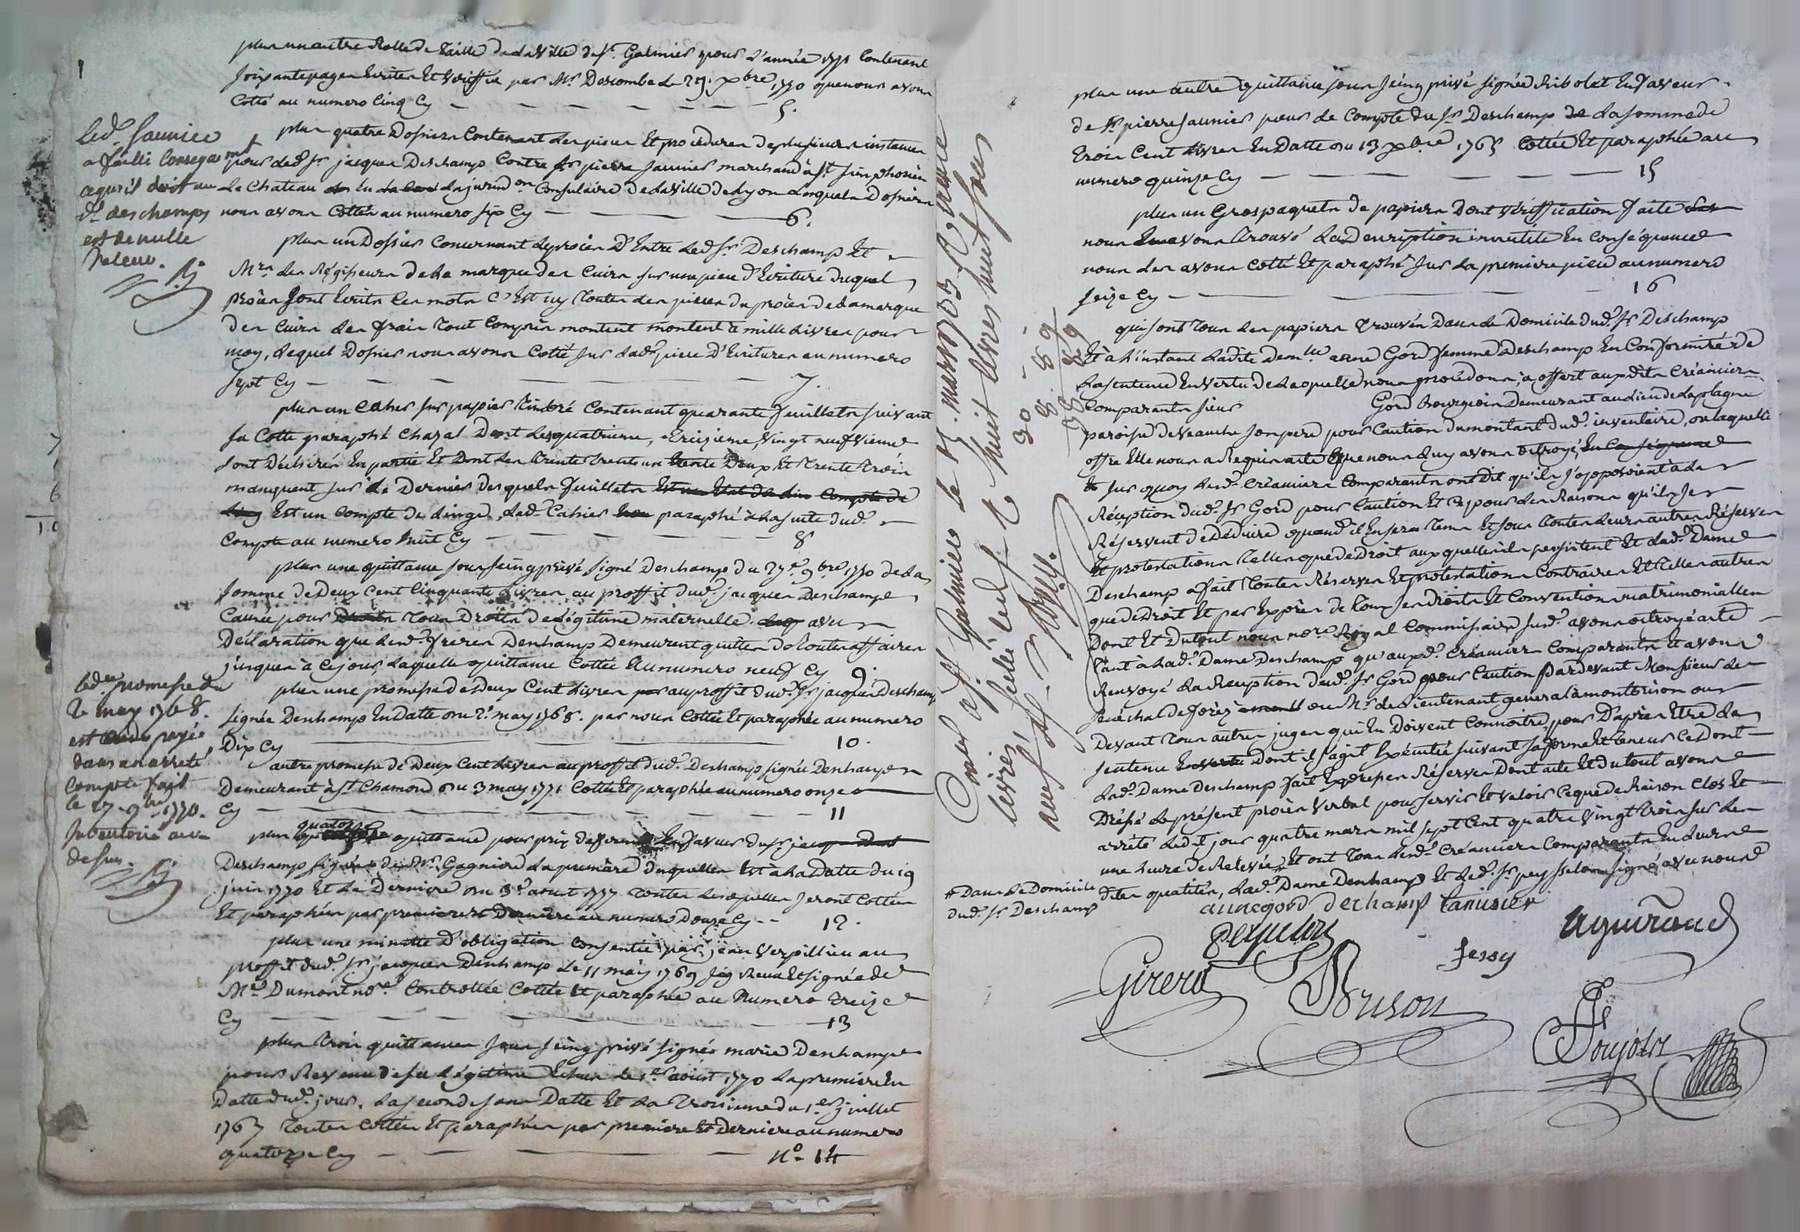 plus un autre Rolle de Taille de la Ville de St. Galmier pour l'année 1771 Contenant
soixante pages Ecrites Et vériffié par Mr. Descombe Le 29. xbre 1770 que nous avons
Cotté au numero Cinq Cy — 5.
plus quatre Dossiers Contenant des pieces Et procédures de plusieurs instances
pour led. Sr jacques Deschamp Contre Sr pierre Saunier marchand à St. Simphorien
Le Chateau En La jurisd.on Consulaire de la Ville de Lyon Lesquels Dossiers
nous avons Cottés au numero six Cy — 6.
Led. Saunier
a failli Consequamt
ce qu'il doit au
d. deschamps
est de nulle
Valeur.
plus un Dossier Concernant Le procès D'Entre Led. Sr. Deschamp Et
Mrs. Les Régisseurs de la marque des Cuirs sur une piece d'Ecriture duquel
procès sont Ecrits Les mots C'Est icy Toutes Les pieces du procès de la marque
des Cuirs Les frais Tout Compris montent montent à mille Livres pour
moy, Lequel Dossier nous avons Cotté sur Lad. piece D'Ecritures au numero
sept Cy — 7.
plus un Cahier sur papier Timbré Contenant quarante feuillets suivant
sa Cotte paraphé Chazal Dont Les quatrieme, Treizieme, Vingt neufvieme
sont Déchirés En partie Et Dont Les Trente Trente un trente Deux Et Trente Trois
manquent sur Le Dernier Desquels feuillets Est un Etat
Est un Compte de Linge, Led. Cahier paraphé à La suite dud.
Compte au numero huit Cy — 8
plus une quittance sous seing privé signé Deschamps du 27e. 9bre 1770 de La
somme de Deux Cent Cinquante Livres au proffit dud. jacques Deschamps
Causée pour Tous Droits de Légitime maternelle avec
Déclaration que Lesd. frères Deschamps Demeurent quittes de Toutes affaires
jusques à Ce jour, Laquelle quittance Cottée Au numero neuf Cy 9.
plus une promesse de Deux Cent Livres au proffit dud. Sr jacques Deschamp
signée Deschamps En Datte du 2. may 1768. par nous Cottée Et paraphée au numero
Dix Cy — 10.
Lade. promesse du
2 may 1768.
est payé
dans un arreté
Compte fait
le 27. 9bre 1770.
Inventorié au
desus.
autre promesse de Deux Cent Livres au proffit dud. Deschamps signée Deschamps
Demeurant à St Chamond du 3 may 1771 Cottée Et paraphée au numero onze
Cy — 11
plus quatre quittances pour prix de ferme En faveur du Sr jacques
Deschamps signées dud. Mr. Gagniard La premiere Desquelles Est à La Datte du 19
juin 1770 Et La Derniere du 3e. aout 1777 Toutes Lesquelles seront Cottées
Et paraphées par premiere et Dernière au numero Douze Cy — 12.
plus une minutte D'obligation Consentie par jean Verpillieu au
proffit dud. Sr. jacques Deschamp Le 11 may 1769 Reçue Et signée de
Me. Dumont nore. Controllée Cottée Et paraphée au Numero Treize
Cy — 13
plus Trois quittances sous seing privé signés marie Deschamps
pour Revenu de sa Légitime Echue Le 1er. aoust 1770 La premiere En
Datte dud. jour, La seconde sans Datte Et La Troisieme du 1er. juillet
1767 Toutes Cottées Et paraphées par premiere Et Derniere au numero
quatorze Cy — No. 14
Controllé à St Galmier le 15. mars 1783 Reçu
huit Livres huit sous
30.
8. 8. 9
plus une autre quittance sous seing privé signée Ribolet En faveur
de Sr. pierre Saunier pour Le Compte du Sr. Deschamp de La somme de
Trois Cent Livres En Datte du 13 xbre 1765 Cottée Et paraphée au
numero quinze Cy — 15
plus un Gros paquets de papiers Dont Vériffication faite
nous avons Trouvé La description inutile En Conséquence
nous Les avons Cotté Et paraphé sur La premiere piece au numero
seize Cy — 16
qui sont Tous Les papiers Trouvés Dans Le Domicile dud. Sr Deschamp
Et à l'instant Ladite demlle anne Gord femme Deschamp En Conformité de
La sentence En Vertu de Laquelle nous procédons a offert auxdits Créanciers
Comparants sieur Gord Bourgeois Demeurant au Lieu de La plagne
paroisse de Veauche son pere pour Caution du montant dud. inventaire, de Laquelle
offre Elle nous a Requis acte Que nous Luy avons octroyé, En Conséquence
sur quoy Lesd. Créanciers Comparants ont Dit qu'ils s'opposoient à La
Réception dud. Sr. Gord pour Caution Et Ce pour Les Raisons qu'ils se
Réservent de Déduire quand il En sera Tems Et sous Toutes Leurs autres Réserves
Et protestations Telles que de Droit auxquelles ils persistent Et Lad. Dame
Deschamp a fait Toutes Réserves Et protestations Contraires Et Telles autres
que de Droit Et par Exprès de Tous ses Droits Et Conventions matrimonialles
Dont Et Du tout nous nore Royal Commissaire susd. avons octroyé acte
Tant à Lad. Dame Deschamp qu'auxd. Créanciers Comparants et avons
Renvoyé La Réception dud. Sr Gord pour Caution Pardevant Monsieur Le
sénéchal de forez ou Mr. Le Lieutenant general à montbrison ou
Devant Tous autres juges qui En Doivent Connoitre pour D'après Etre La
sentence Dont il s'agit Exécutée suivant sa forme Et teneur Ce Dont
Lad. Dame Deschamp fait Expresses Réserves Dont acte Et du tout avons
Dressé Le présent procès Verbal pour servir Et valoir Ce que de Raison Clos Et
arrêté Led. jour quatre mars mil sept Cent quatre Vingt Trois sur Les
une heure de Relevée, Et ont Tous Lesd. Créanciers Comparants En Leurs
dites qualités, Lad. Dame Deschamp Et Led. Sr peysselon signé avec nous
# Dans Le Domicile
dud. Sr Deschamp
anne gord deschamp Tanuisier
Peysselon Jessy Aguiraud
Girerd Brison
Poujolz